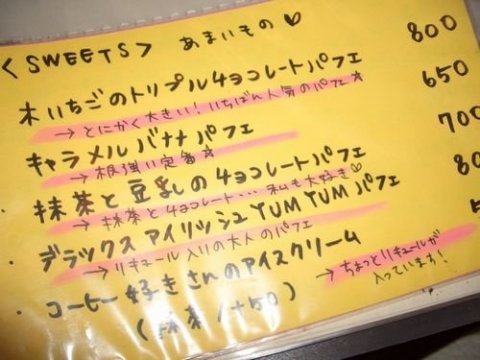 < SWEETS > あまいもの ♡
木いちごのトリプルチョコレートパフェ 800
→ とにかく大きい！いちばん人気のパフェ☆
キャラメルバナナパフェ 650
→ 根強い定番☆
・抹茶と豆乳のチョコレートパフェ 700
→ 抹茶とチョコレート・・・私も大好き♡
・デラックスアイリッシュYUM YUMパフェ 80
→ リキュール入りの大人のパフェ
・コーヒー好きさんのアイスクリーム
(抹茶/+50)
→ ちょっとリキュールが
入っています！